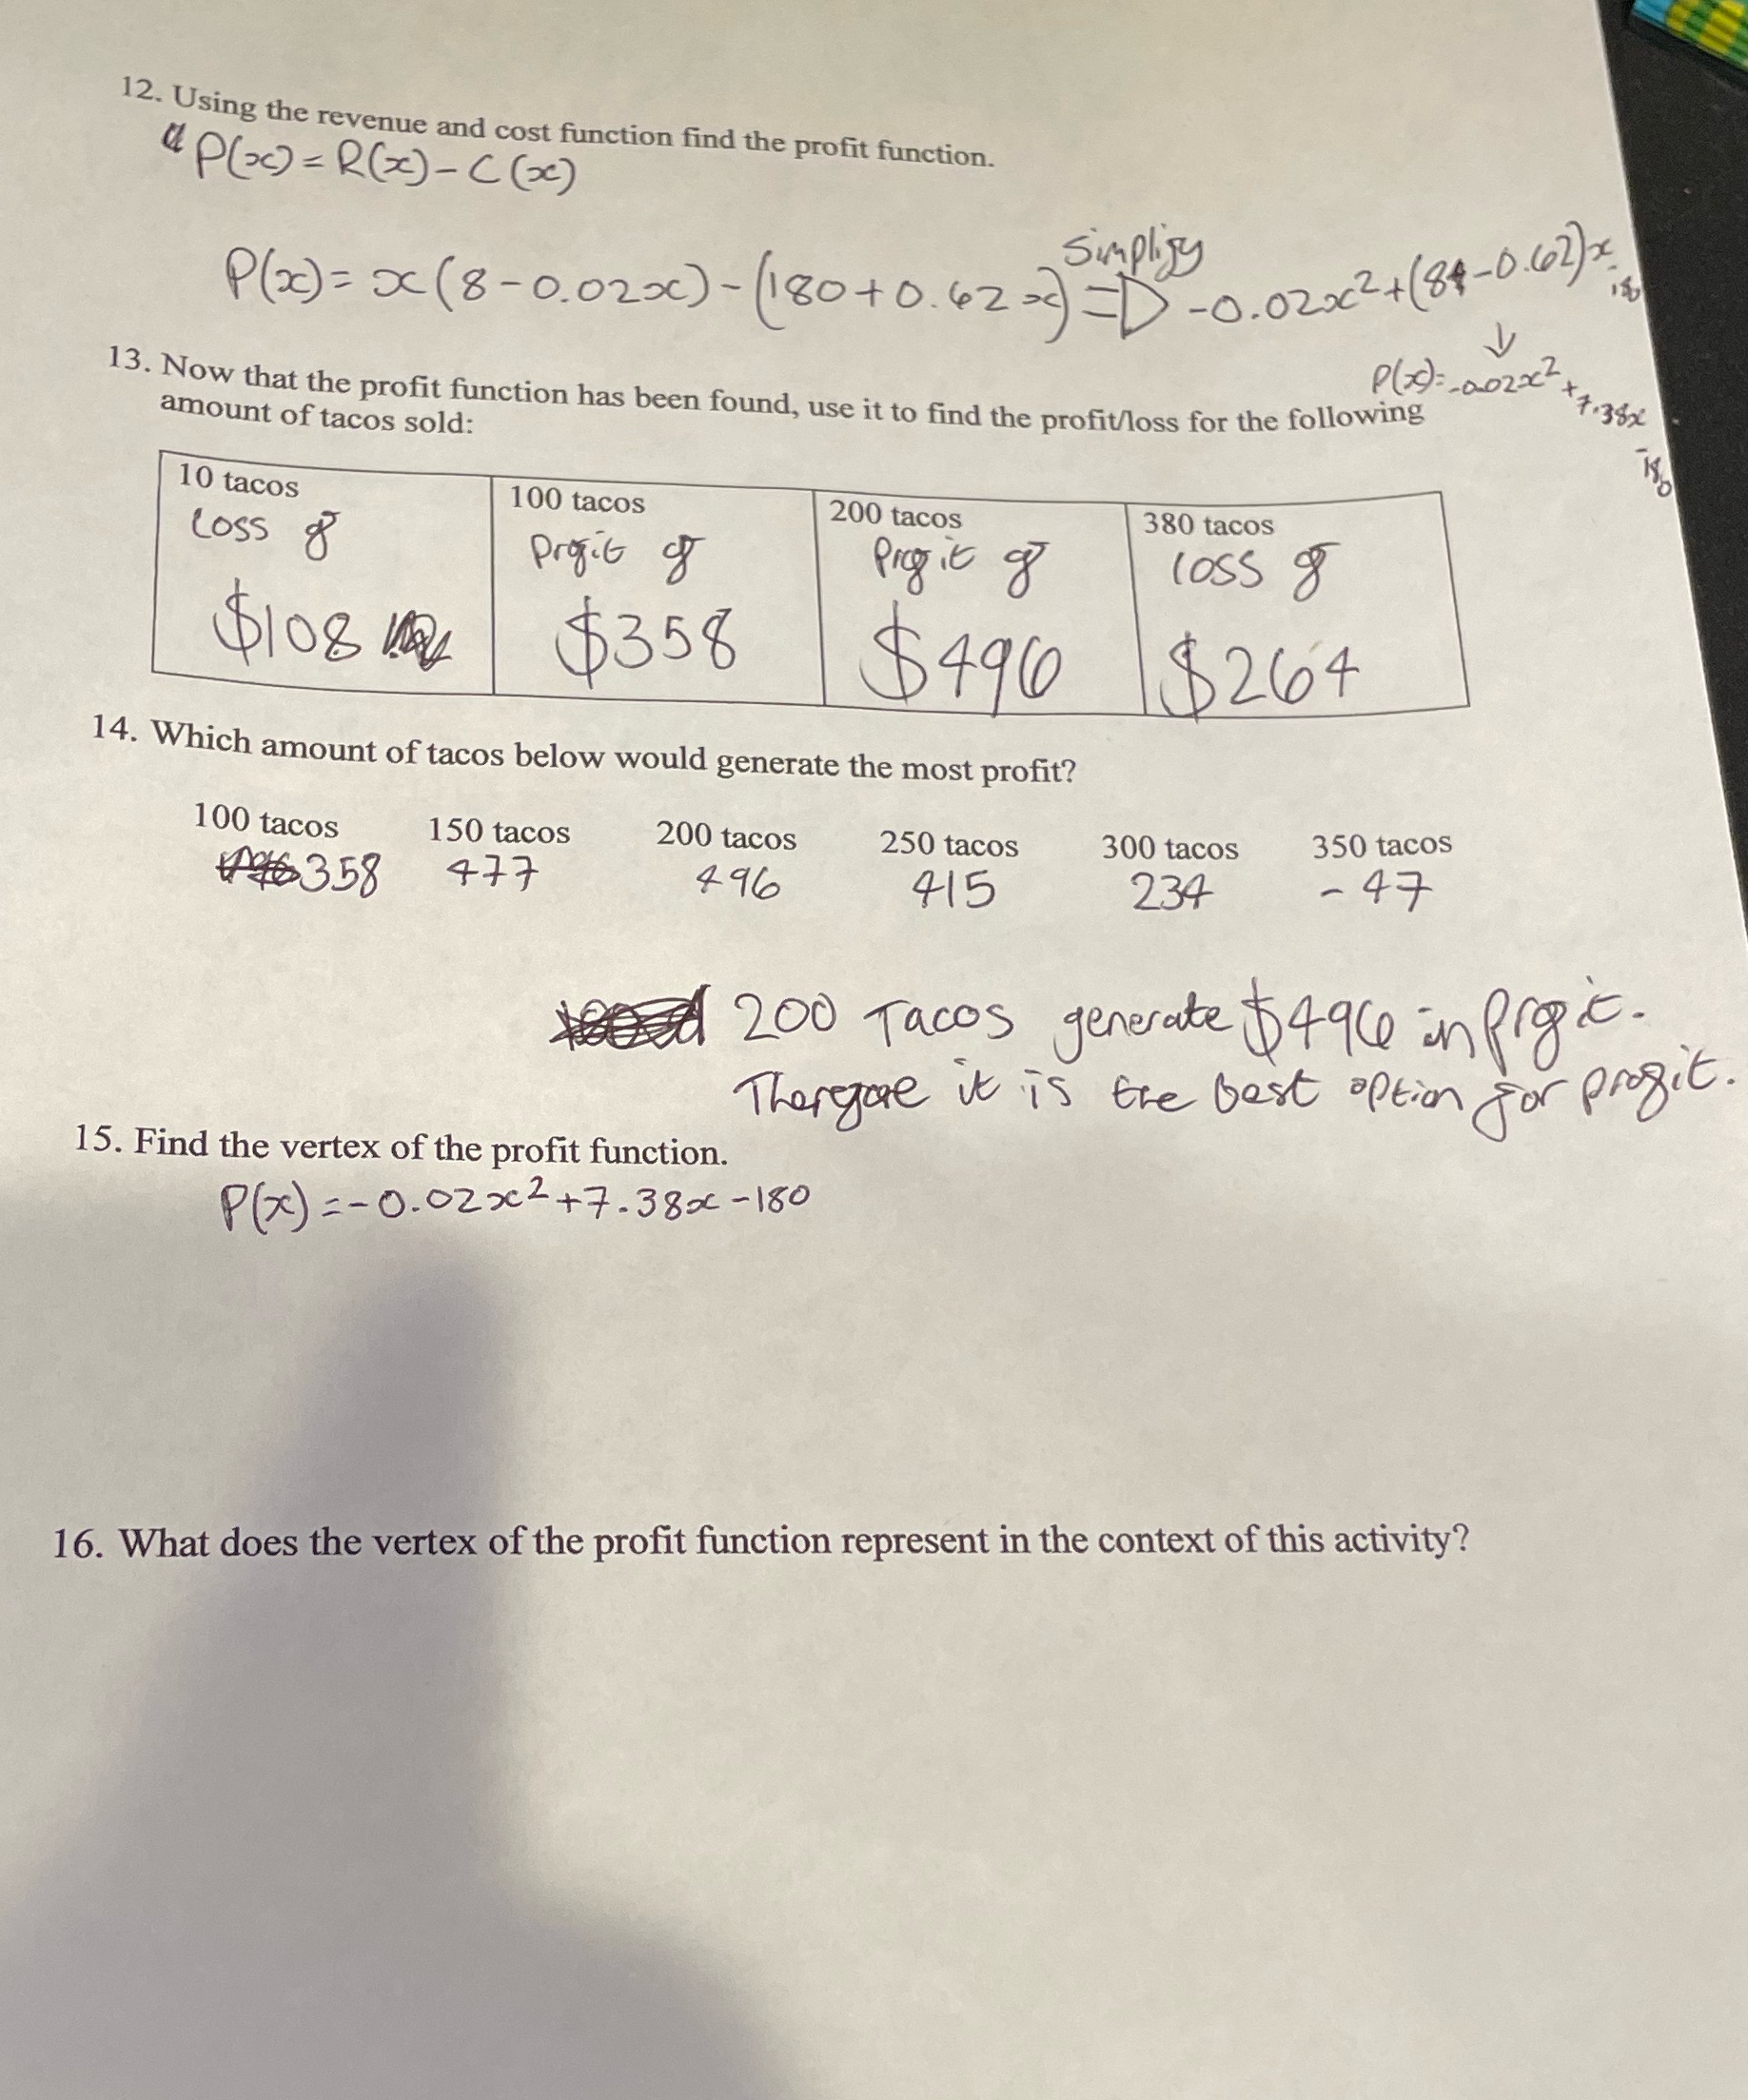 12. Using the revenue and cost function find the profit function.
P(x) = R(x) - C(x)
Simplify
P(x) = x(8 - 0.02x) - (180 + 0.62x) ⇒ -0.02x² + (8 - 0.62)x - 180
↓
P(x) = -0.02x² + 7.38x - 180
13. Now that the profit function has been found, use it to find the profit/loss for the following
amount of tacos sold:
10 tacos 100 tacos 200 tacos 380 tacos
Loss of Profit of Profit of loss of
$108 $358 $496 $264
14. Which amount of tacos below would generate the most profit?
100 tacos 150 tacos 200 tacos 250 tacos 300 tacos 350 tacos
358 477 496 415 234 -47
200 Tacos generate $496 in profit.
Therefore it is the best option for profit.
15. Find the vertex of the profit function.
P(x) = -0.02x² + 7.38x - 180
16. What does the vertex of the profit function represent in the context of this activity?